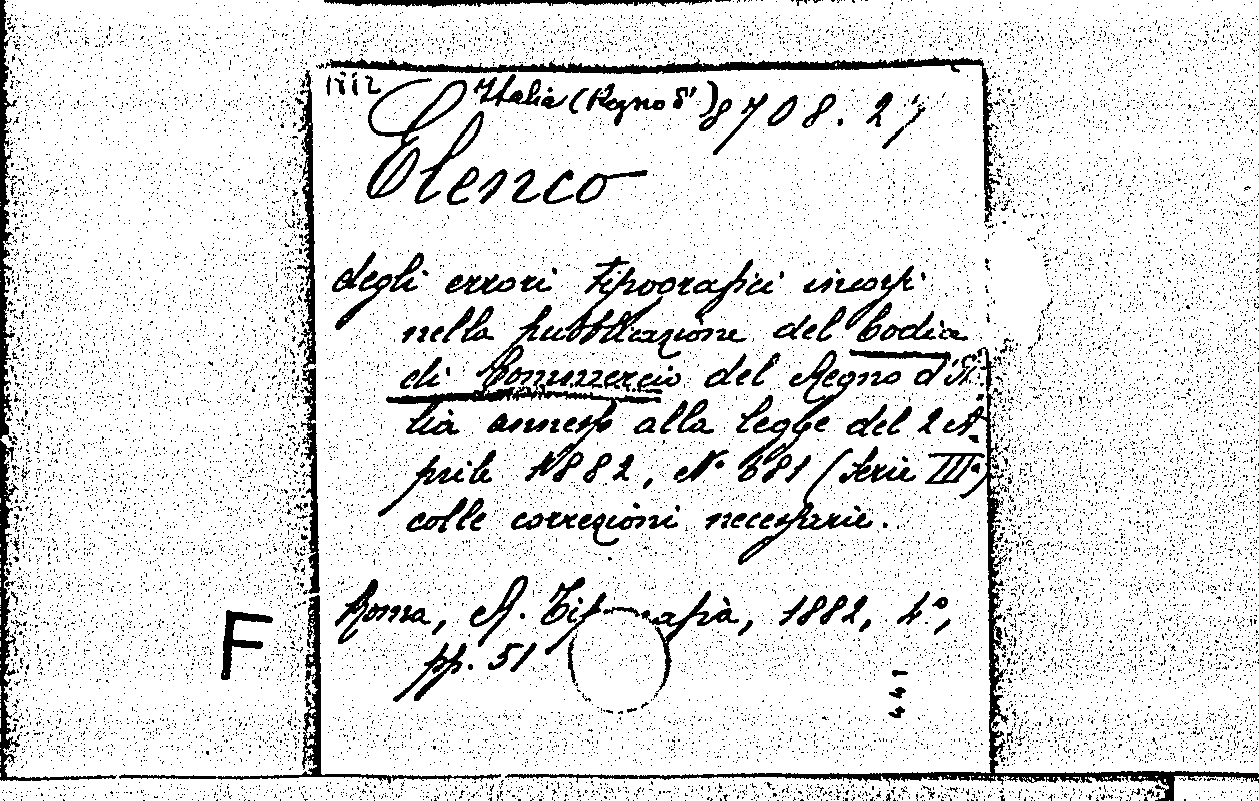 1882
Italia (Regno d') 8708.27
Elenco
degli errori tipografici incorsi
nella pubblicazione del Codice
di Commercio del Regno d'Ita-
lia annesso alla legge del 2 A-
prile 1882, Nº 681 (Serie IIIª)
colle correzioni necessarie.
Roma, R. Tipografia, 1882, 4º,
pp. 51
F
441